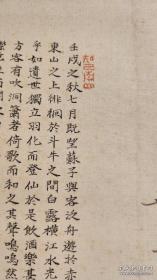 壬戌之秋七月既望蘇子與客泛舟遊於赤
東山之上徘徊於斗牛之間白露橫江水光
乎如遺世獨立羽化而登仙於是飲酒樂甚
方客有吹洞簫者倚歌而和之其聲嗚嗚然